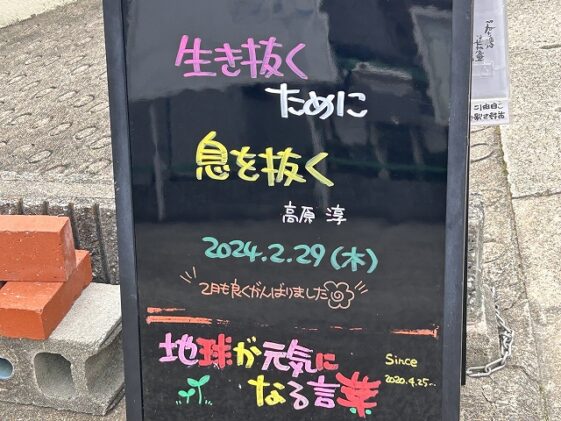 生き抜く
ために
息を抜く
高原 淳
2024.2.29(木)
2月も良くがんばりました
地球が元気に
なる言葉
Since
2020.4.25~